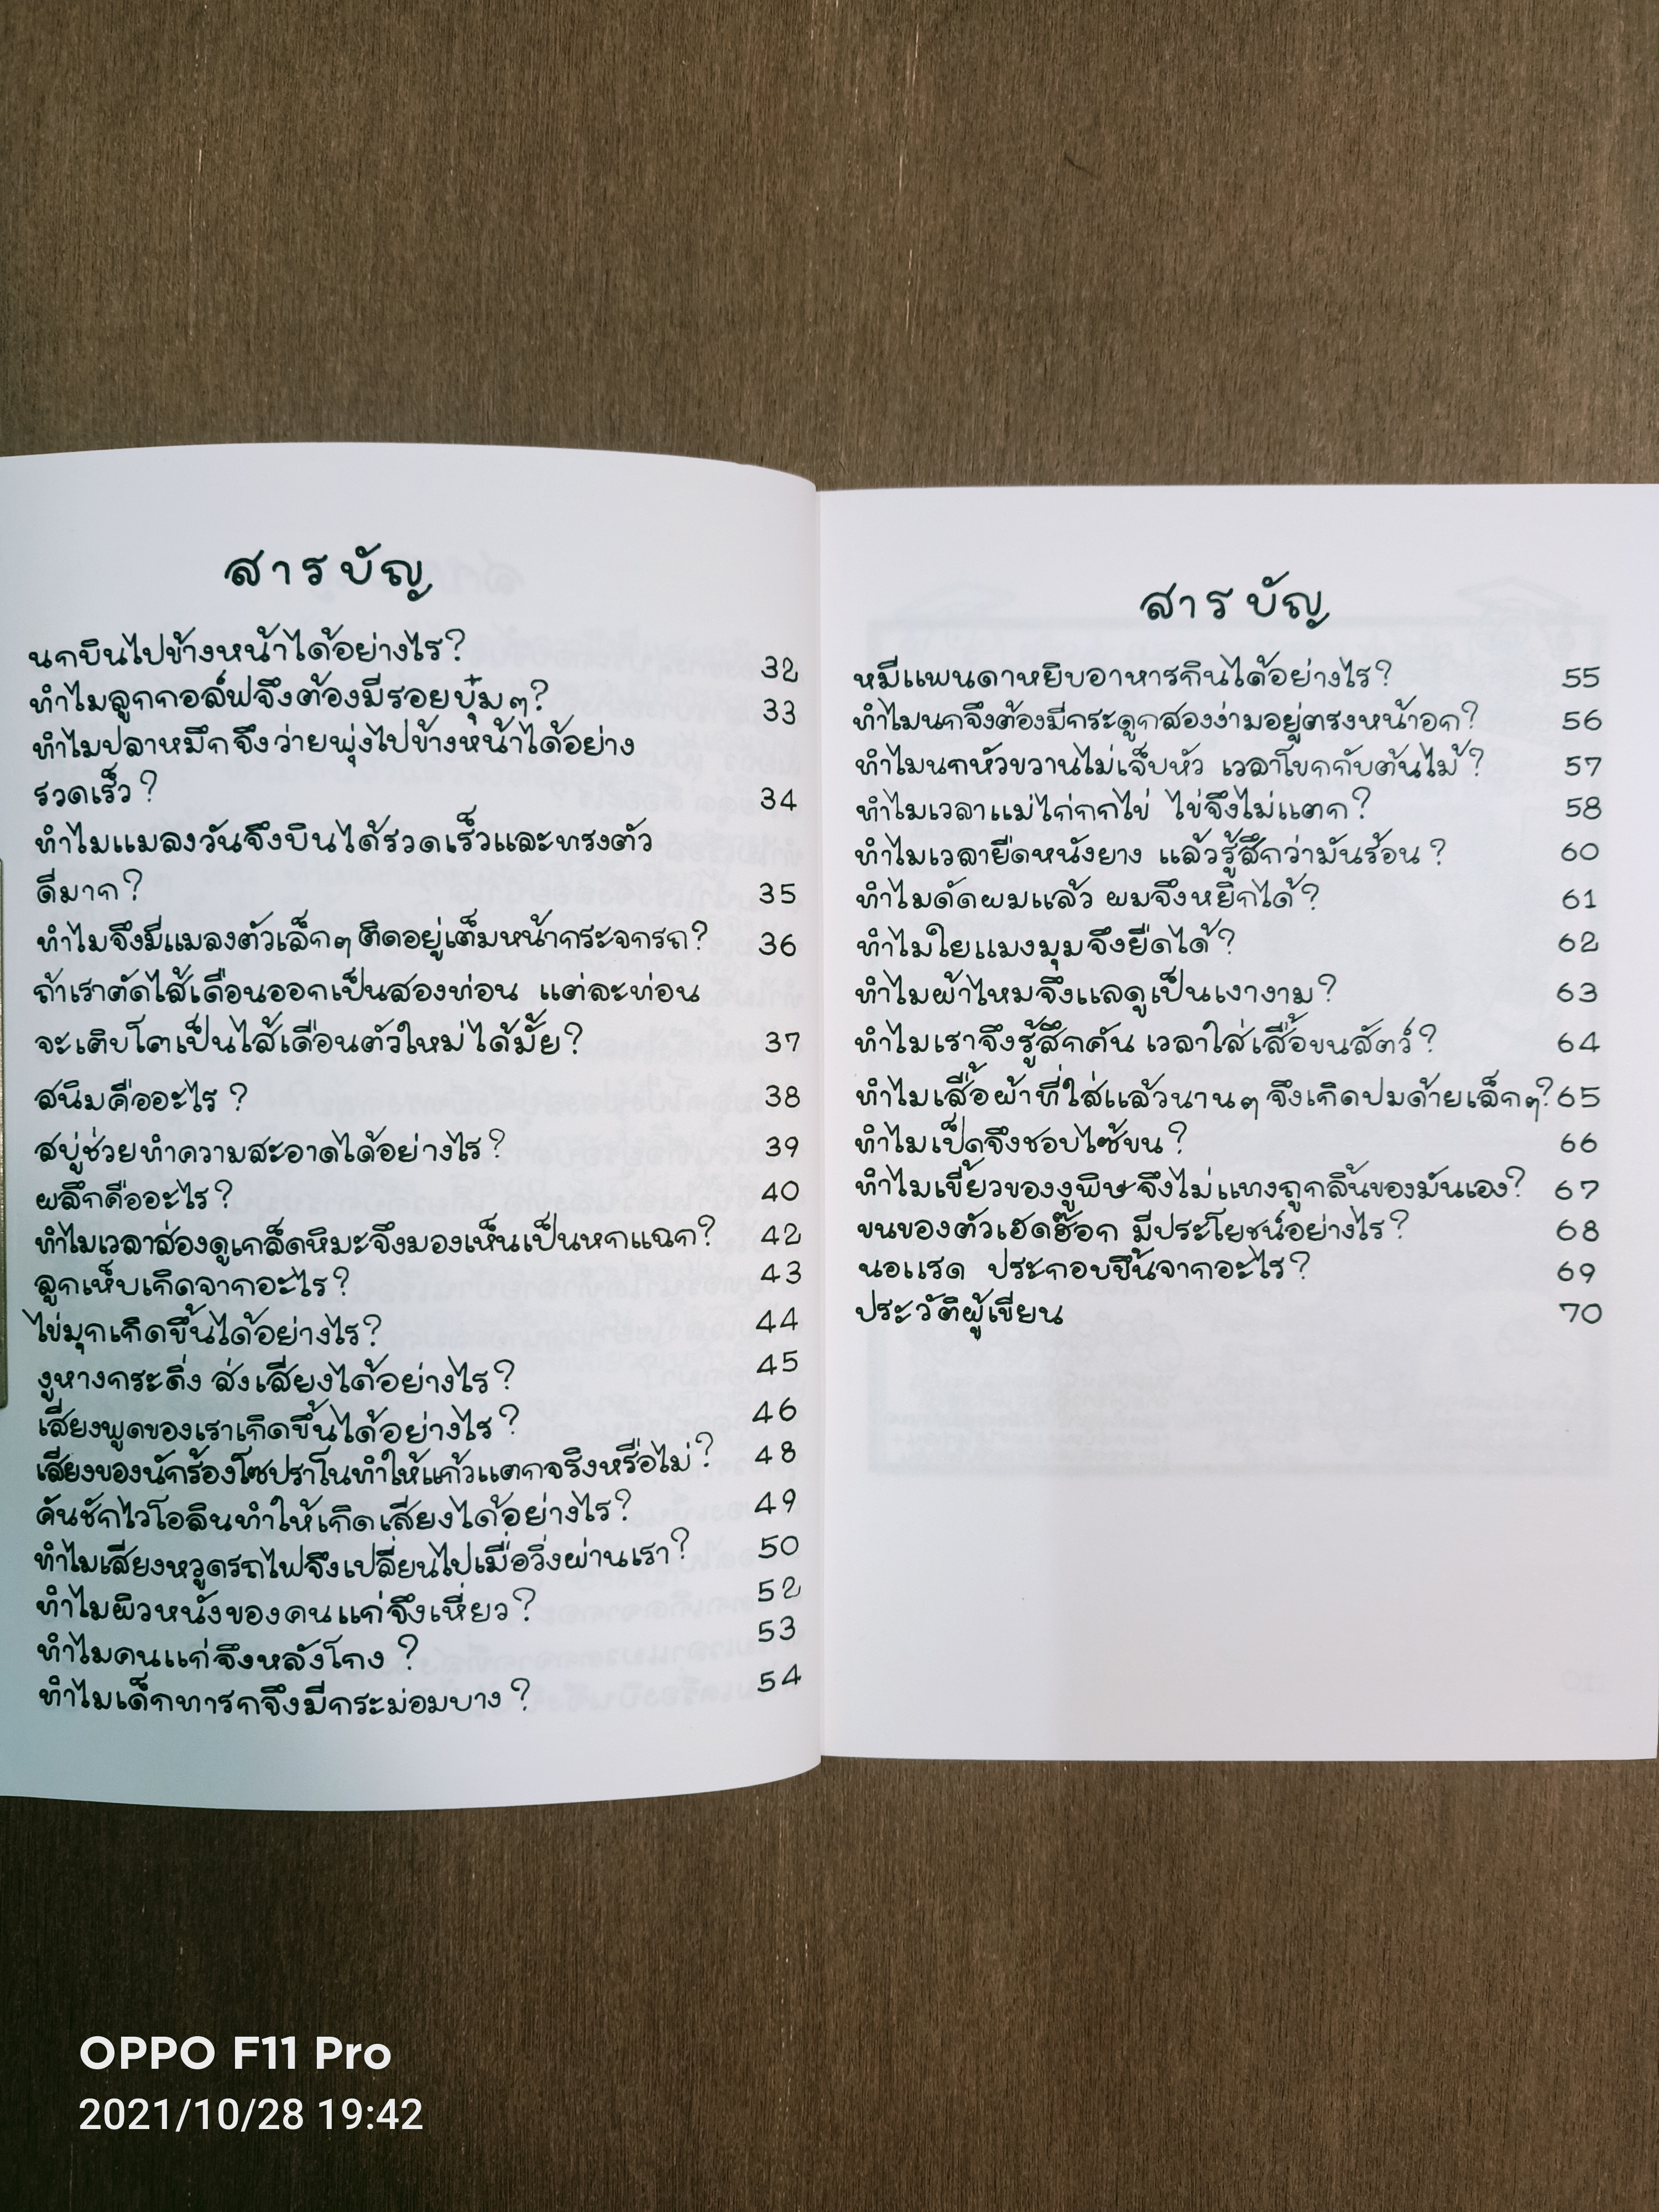 สารบัญ
นกบินไปข้างหน้าได้อย่างไร? 32
ทำไมลูกกอล์ฟจึงต้องมีรอยบุ๋มๆ? 33
ทำไมปลาหมึกจึงว่ายพุ่งไปข้างหน้าได้อย่าง
รวดเร็ว? 34
ทำไมแมลงวันจึงบินได้รวดเร็วและทรงตัว
ดีมาก? 35
ทำไมจึงมีแมลงตัวเล็กๆ ติดอยู่เต็มหน้ากระจกรถ? 36
ถ้าเราตัดไส้เดือนออกเป็นสองท่อน แต่ละท่อน
จะเติบโตเป็นไส้เดือนตัวใหม่ได้มั้ย? 37
สนิมคืออะไร? 38
สบู่ช่วยทำความสะอาดได้อย่างไร? 39
ผลึกคืออะไร? 40
ทำไมเวลาส่องดูเกล็ดหิมะจึงมองเห็นเป็นหกแฉก? 42
ลูกเห็บเกิดจากอะไร? 43
ไข่มุกเกิดขึ้นได้อย่างไร? 44
งูหางกระดิ่ง ส่งเสียงได้อย่างไร? 45
เสียงพูดของเราเกิดขึ้นได้อย่างไร? 46
เสียงของนักร้องโซปราโนทำให้แก้วแตกจริงหรือไม่? 48
คันชักไวโอลินทำให้เกิดเสียงได้อย่างไร? 49
ทำไมเสียงหวูดรถไฟจึงเปลี่ยนไปเมื่อวิ่งผ่านเรา? 50
ทำไมผิวหนังของคนแก่จึงเหี่ยว? 52
ทำไมคนแก่จึงหลังโกง? 53
ทำไมเด็กทารกจึงมีกระม่อมบาง? 54
สารบัญ
หมีแพนดาหยิบอาหารกินได้อย่างไร? 55
ทำไมนกจึงต้องมีกระดูกสองง่ามอยู่ตรงหน้าอก? 56
ทำไมนกหัวขวานไม่เจ็บหัว เวลาโขกกับต้นไม้? 57
ทำไมเวลาแม่ไก่กกไข่ ไข่จึงไม่แตก? 58
ทำไมเวลายืดหนังยาง แล้วรู้สึกว่ามันร้อน? 60
ทำไมดัดผมแล้ว ผมจึงหยิกได้? 61
ทำไมใยแมงมุมจึงยืดได้? 62
ทำไมผ้าไหมจึงแลดูเป็นเงางาม? 63
ทำไมเราจึงรู้สึกคัน เวลาใส่เสื้อขนสัตว์? 64
ทำไมเสื้อผ้าที่ใส่แล้วนานๆ จึงเกิดปมด้ายเล็กๆ? 65
ทำไมเป็ดจึงชอบไซ้ขน? 66
ทำไมเขี้ยวของงูพิษจึงไม่แทงถูกลิ้นของมันเอง? 67
ขนของตัวเฮดฮ๊อก มีประโยชน์อย่างไร? 68
นอแรด ประกอบขึ้นจากอะไร? 69
ประวัติผู้เขียน 70
OPPO F11 Pro
2021/10/28 19:42